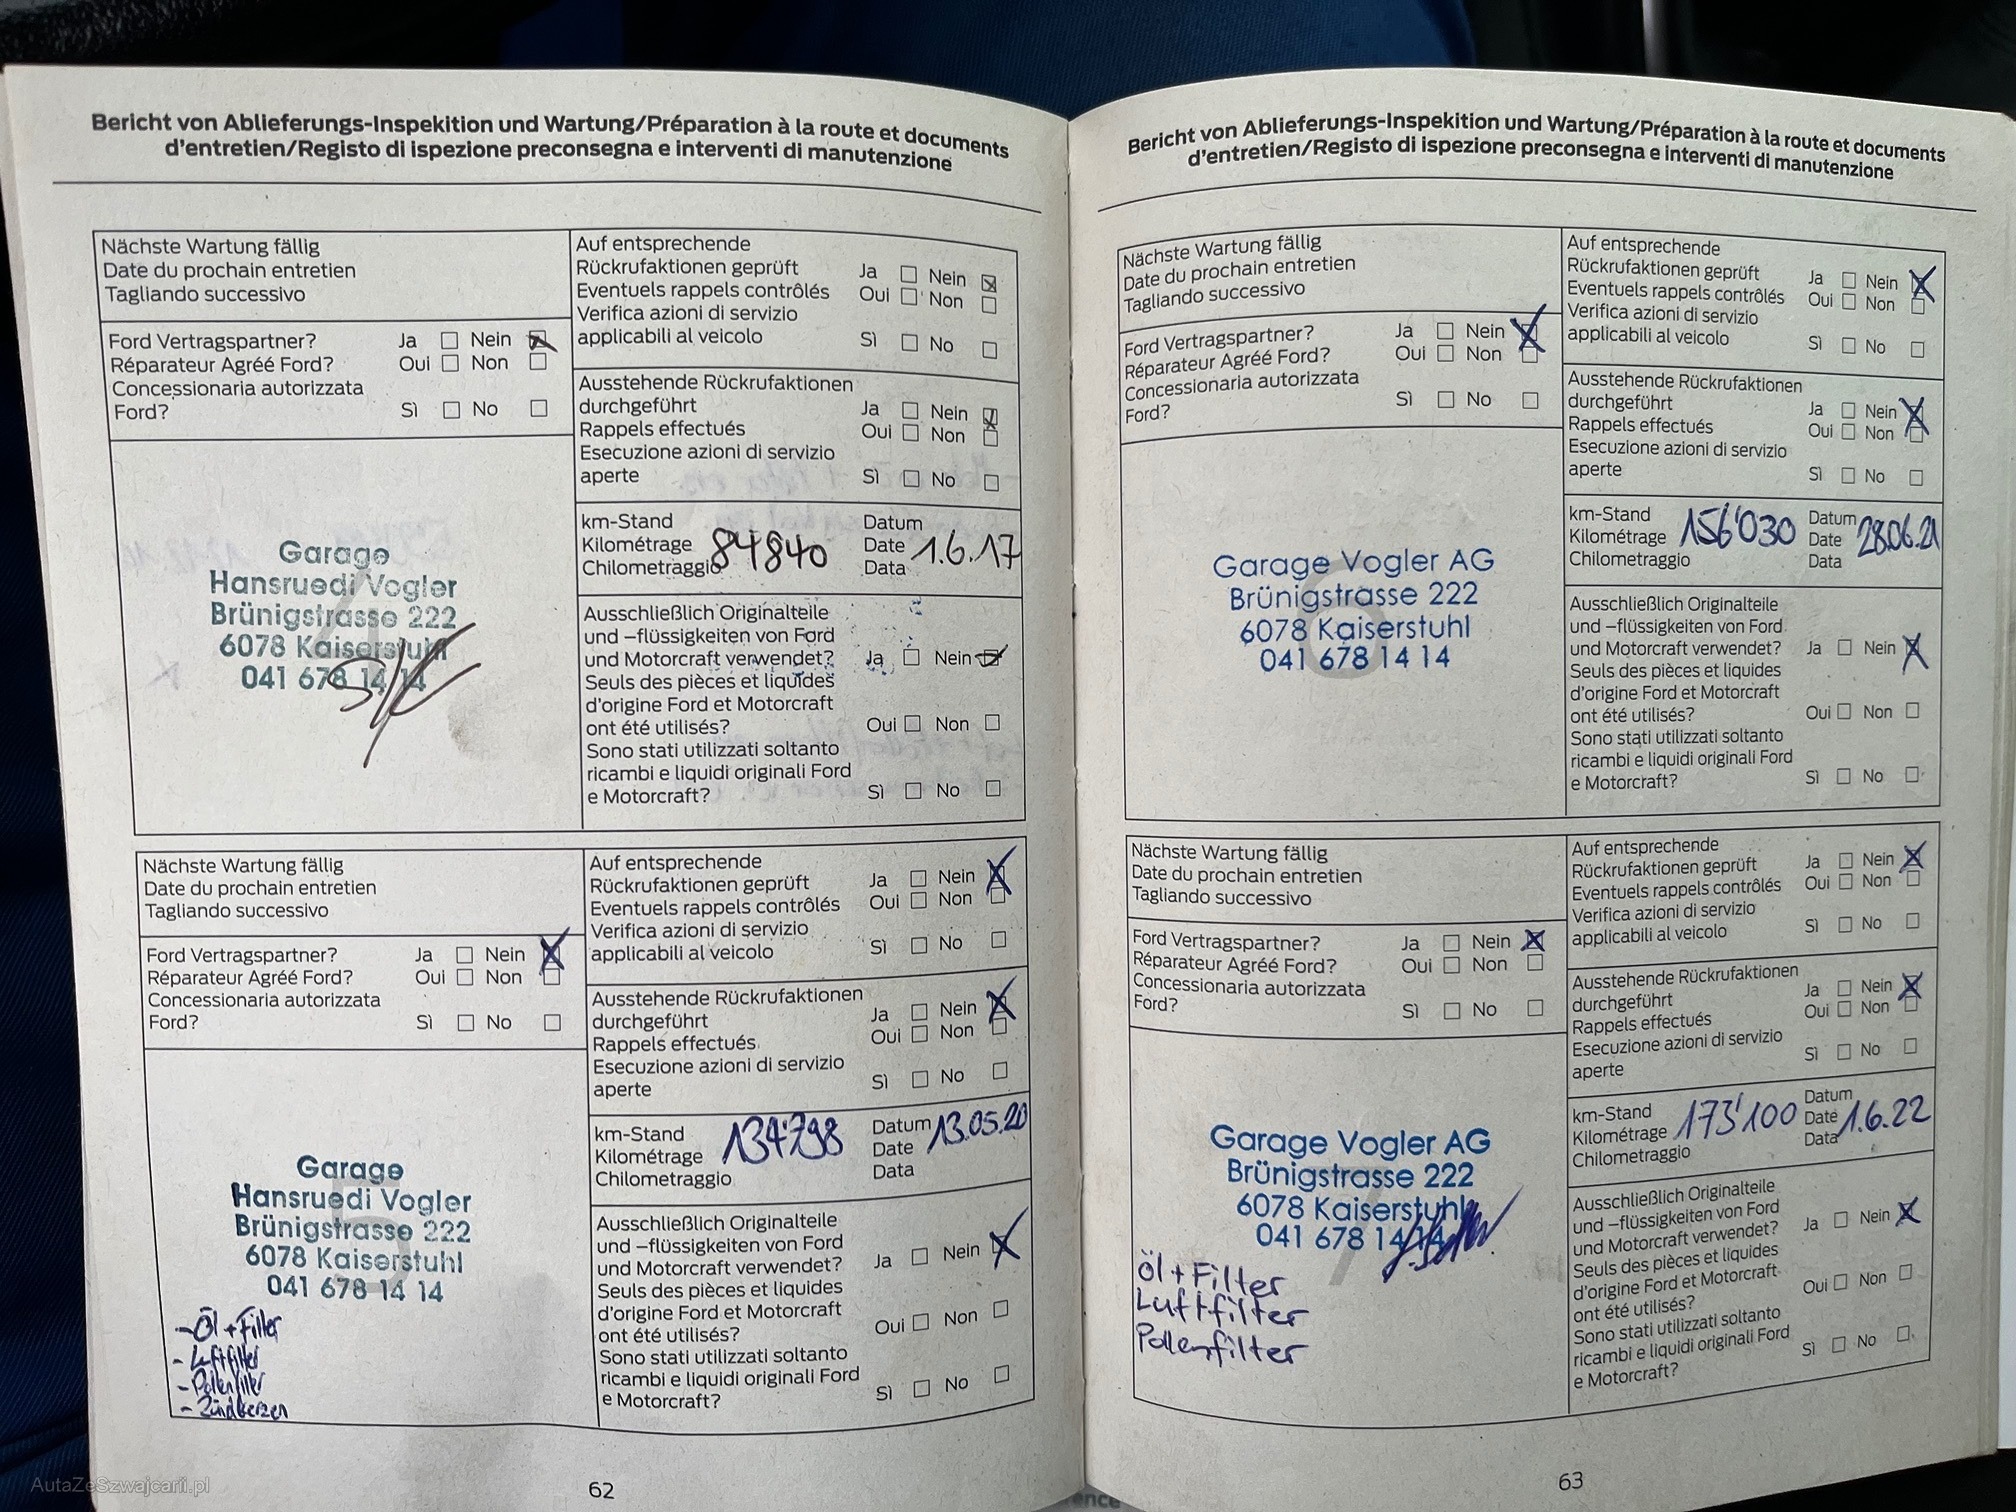 Bericht von Ablieferungs-Inspekition und Wartung/Préparation à la route et documents
d'entretien/Registo di ispezione preconsegna e interventi di manutenzione
Nächste Wartung fällig
Date du prochain entretien
Tagliando successivo
Ford Vertragspartner? Ja Nein
Réparateur Agréé Ford? Oui Non
Concessionaria autorizzata
Ford? Sì No
Garage
Hansruedi Vogler
Brünigstrasse 222
6078 Kaiserstuhl
041 678 14 14
Auf entsprechende
Rückrufaktionen geprüft Ja Nein
Eventuels rappels contrôlés Oui Non
Verifica azioni di servizio
applicabili al veicolo Sì No
Ausstehende Rückrufaktionen
durchgeführt Ja Nein
Rappels effectués Oui Non
Esecuzione azioni di servizio
aperte Sì No
km-Stand Datum
Kilométrage 84840 Date 1.6.17
Chilometraggio Data
Ausschließlich Originalteile
und –flüssigkeiten von Ford
und Motorcraft verwendet? Ja Nein
Seuls des pièces et liquides
d'origine Ford et Motorcraft
ont été utilisés? Oui Non
Sono stati utilizzati soltanto
ricambi e liquidi originali Ford
e Motorcraft? Sì No
Nächste Wartung fällig
Date du prochain entretien
Tagliando successivo
Ford Vertragspartner? Ja Nein
Réparateur Agréé Ford? Oui Non
Concessionaria autorizzata
Ford? Sì No
Garage
Hansruedi Vogler
Brünigstrasse 222
6078 Kaiserstuhl
041 678 14 14
- Öl + Filter
- Luftfilter
- Pollenfilter
- Zündkerzen
Auf entsprechende
Rückrufaktionen geprüft Ja Nein
Eventuels rappels contrôlés Oui Non
Verifica azioni di servizio
applicabili al veicolo Sì No
Ausstehende Rückrufaktionen
durchgeführt Ja Nein
Rappels effectués Oui Non
Esecuzione azioni di servizio
aperte Sì No
km-Stand Datum
Kilométrage 134'798 Date 13.05.20
Chilometraggio Data
Ausschließlich Originalteile
und –flüssigkeiten von Ford
und Motorcraft verwendet? Ja Nein
Seuls des pièces et liquides
d'origine Ford et Motorcraft
ont été utilisés? Oui Non
Sono stati utilizzati soltanto
ricambi e liquidi originali Ford
e Motorcraft? Sì No
62
AutaZeSzwajcarii.pl
Bericht von Ablieferungs-Inspekition und Wartung/Préparation à la route et documents
d'entretien/Registo di ispezione preconsegna e interventi di manutenzione
Nächste Wartung fällig
Date du prochain entretien
Tagliando successivo
Ford Vertragspartner? Ja Nein
Réparateur Agréé Ford? Oui Non
Concessionaria autorizzata
Ford? Sì No
6
Garage Vogler AG
Brünigstrasse 222
6078 Kaiserstuhl
041 678 14 14
Auf entsprechende
Rückrufaktionen geprüft Ja Nein
Eventuels rappels contrôlés Oui Non
Verifica azioni di servizio
applicabili al veicolo Sì No
Ausstehende Rückrufaktionen
durchgeführt Ja Nein
Rappels effectués Oui Non
Esecuzione azioni di servizio
aperte Sì No
km-Stand Datum
Kilométrage 156'030 Date 28.06.21
Chilometraggio Data
Ausschließlich Originalteile
und –flüssigkeiten von Ford
und Motorcraft verwendet? Ja Nein
Seuls des pièces et liquides
d'origine Ford et Motorcraft
ont été utilisés? Oui Non
Sono stati utilizzati soltanto
ricambi e liquidi originali Ford
e Motorcraft? Sì No
Nächste Wartung fällig
Date du prochain entretien
Tagliando successivo
Ford Vertragspartner? Ja Nein
Réparateur Agréé Ford? Oui Non
Concessionaria autorizzata
Ford? Sì No
Garage Vogler AG
Brünigstrasse 222
6078 Kaiserstuhl
041 678 14 14
Öl + Filter
Luftfilter
Pollenfilter
Auf entsprechende
Rückrufaktionen geprüft Ja Nein
Eventuels rappels contrôlés Oui Non
Verifica azioni di servizio
applicabili al veicolo Sì No
Ausstehende Rückrufaktionen
durchgeführt Ja Nein
Rappels effectués Oui Non
Esecuzione azioni di servizio
aperte Sì No
km-Stand Datum
Kilométrage 173'100 Date 1.6.22
Chilometraggio Data
Ausschließlich Originalteile
und –flüssigkeiten von Ford
und Motorcraft verwendet? Ja Nein
Seuls des pièces et liquides
d'origine Ford et Motorcraft
ont été utilisés? Oui Non
Sono stati utilizzati soltanto
ricambi e liquidi originali Ford
e Motorcraft? Sì No
63